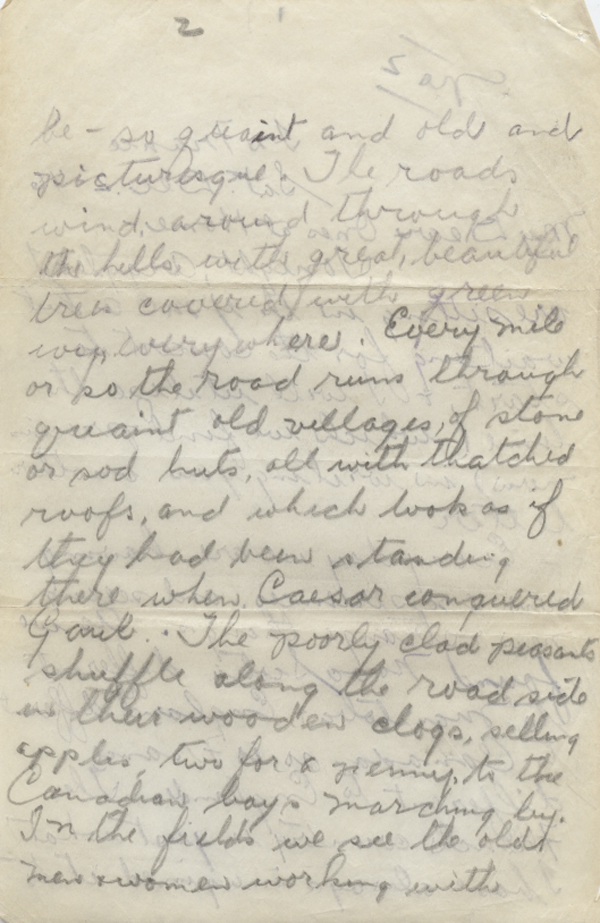 2
be - so quaint and old and
picturesque. The roads
wind around through
the hills, with great, beautiful
trees covered with green
everywhere. Every mile
or so the road runs through
quaint old villages, of stone
or sod huts, all with thatched
roofs, and which look as if
they had been standing
there when Caesar conquered
Gaul. The poorly clad peasants
shuffle along the road side
in their wooden clogs, selling
apples, two for a penny, to the
Canadian boys marching by.
In the fields we see the old
men & women working with